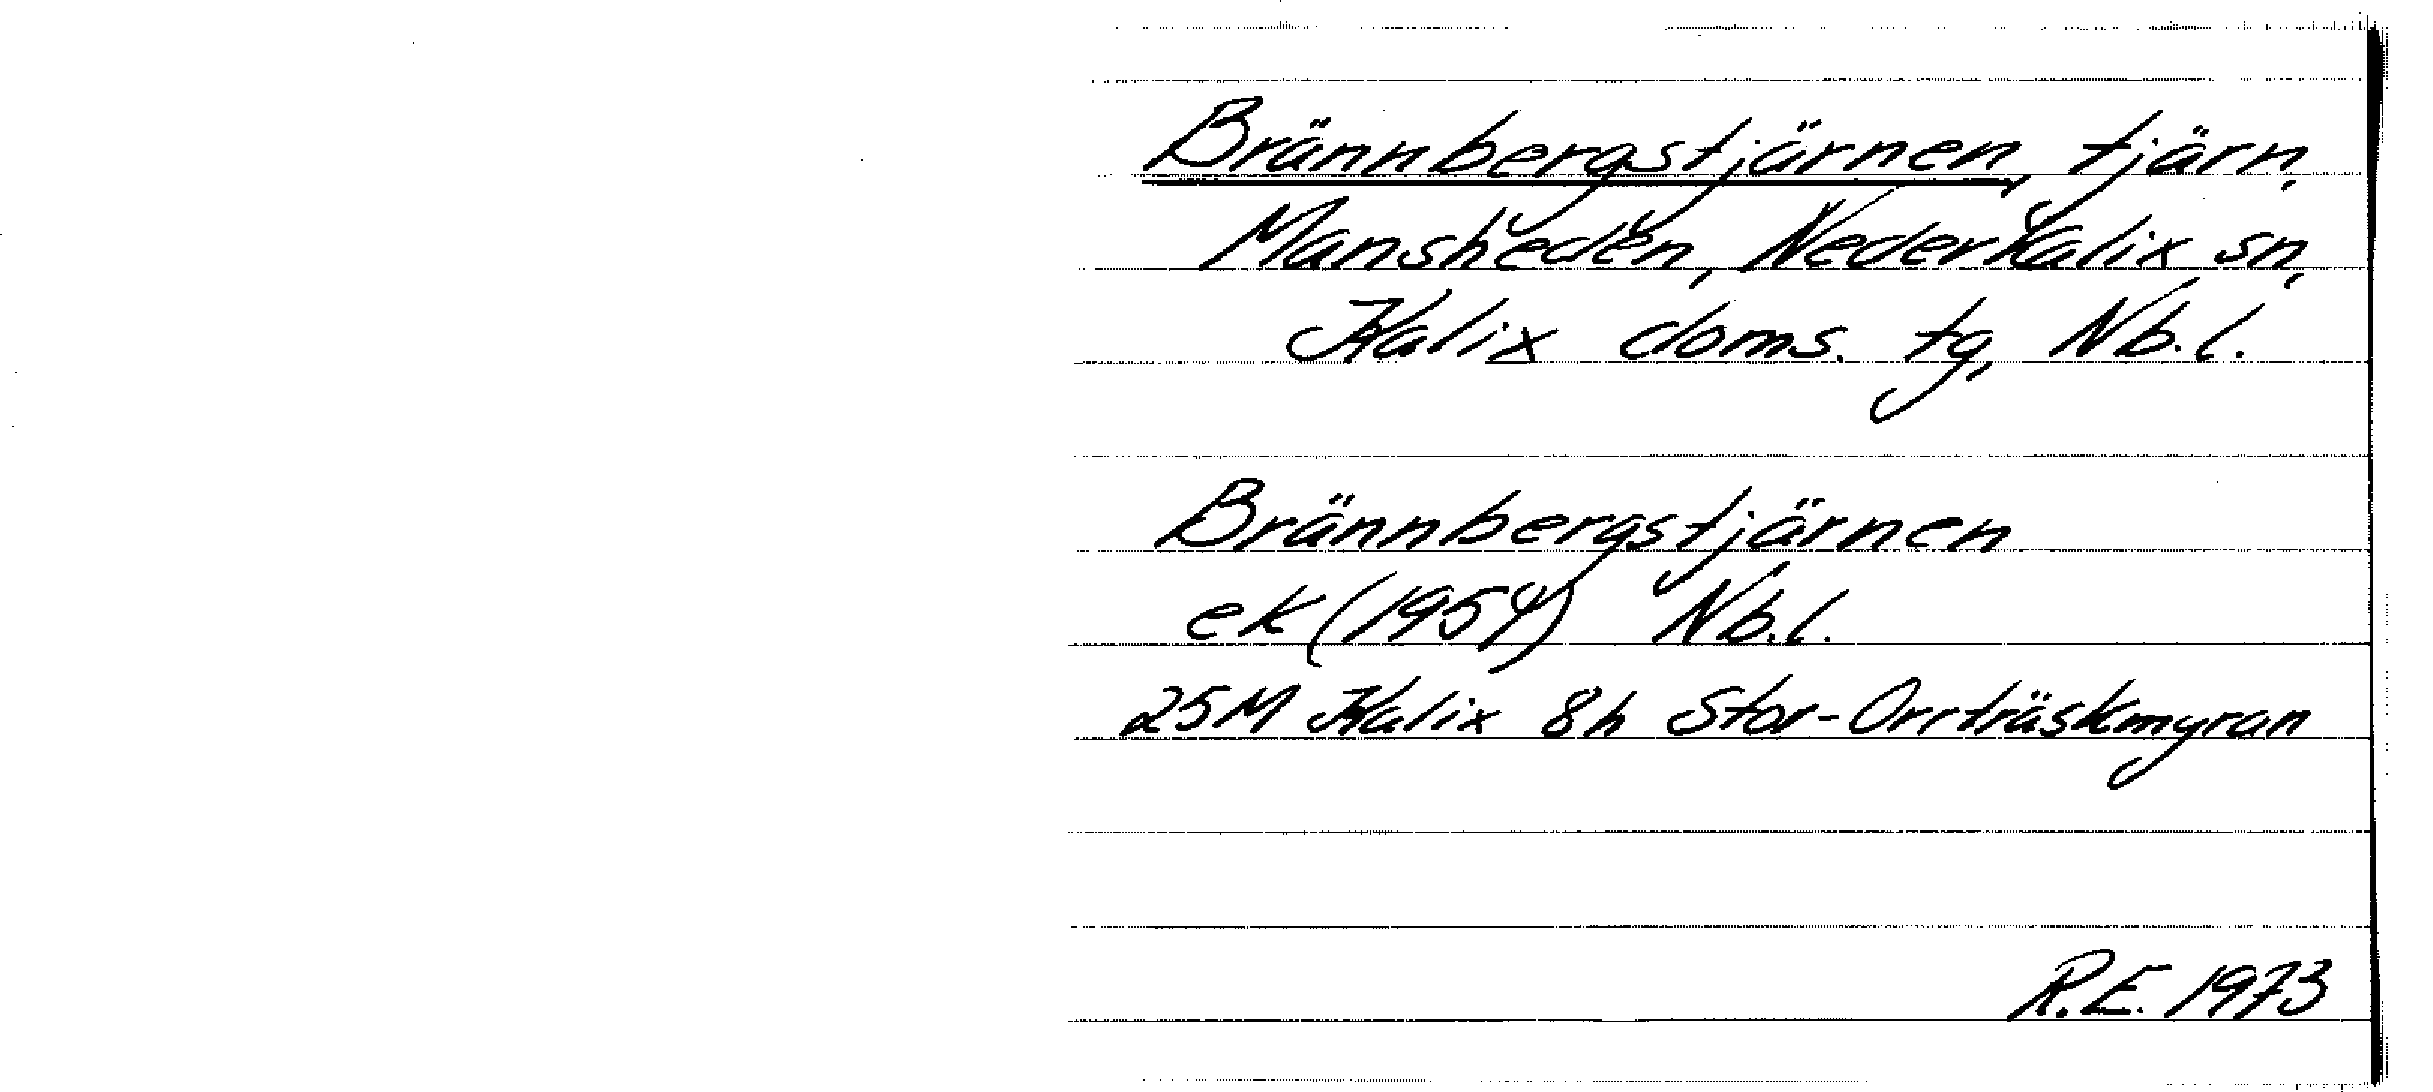 Brännbergstjärnen, tjärn,
Mansheden, Nederkalix sn,
Kalix doms. tg, Nb.l.
Brännbergstjärnen
ek (1954) Nb.l.
25M Kalix 8h Stor-Orrträskmyran
R.E. 1973